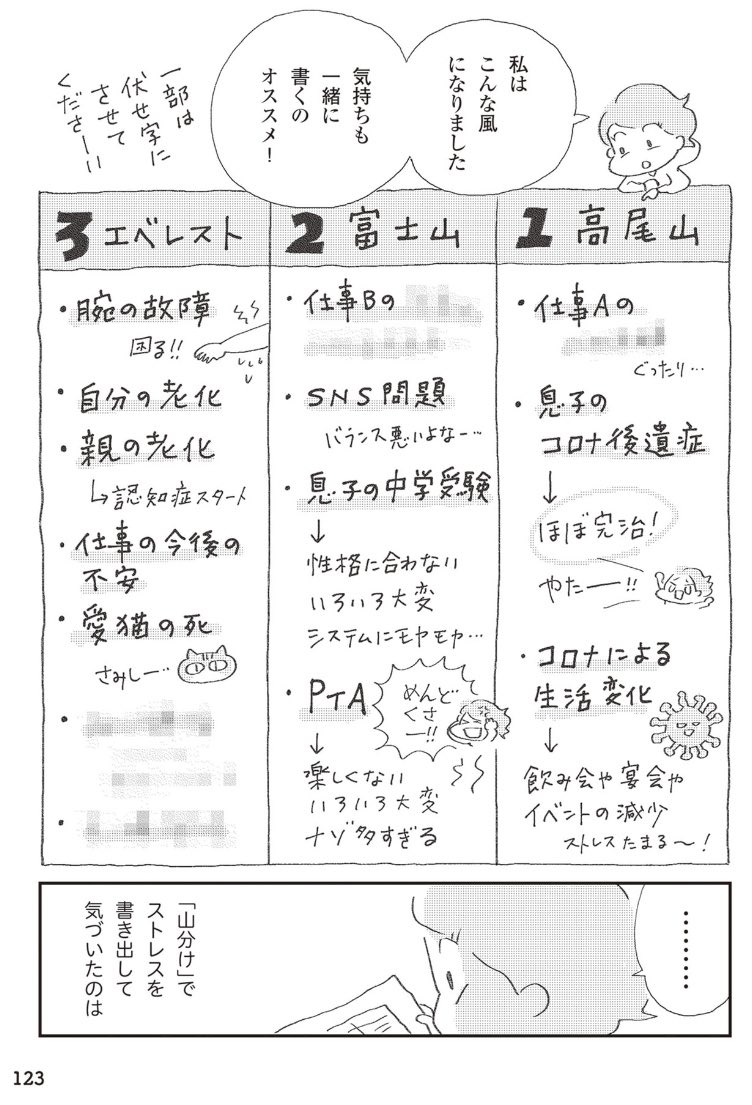 私は
こんな風
になりました
気持ちも
一緒に
書くの
オススメ!
一部は
伏せ字に
させて
くださーい
1 高尾山
・仕事Aの
ぐったり…
・息子の
コロナ後遺症
↓
ほぼ完治!
やたー!!
・コロナによる
生活変化
↓
飲み会や宴会や
イベントの減少
ストレスたまる〜!
2 富士山
・仕事Bの
・SNS問題
バランス悪いよなー…
・息子の中学受験
↓
性格に合わない
いろいろ大変
システムにモヤモヤ…
・PTA
めんど
くさ
ー!!
↓
楽しくない
いろいろ大変
ナゾ多すぎる
3 エベレスト
・腕の故障
困る!!
・自分の老化
・親の老化
↳認知症スタート
・仕事の今後の
不安
・愛猫の死
さみしー…
・
・
………
「山分け」で
ストレスを
書き出して
気づいたのは
123